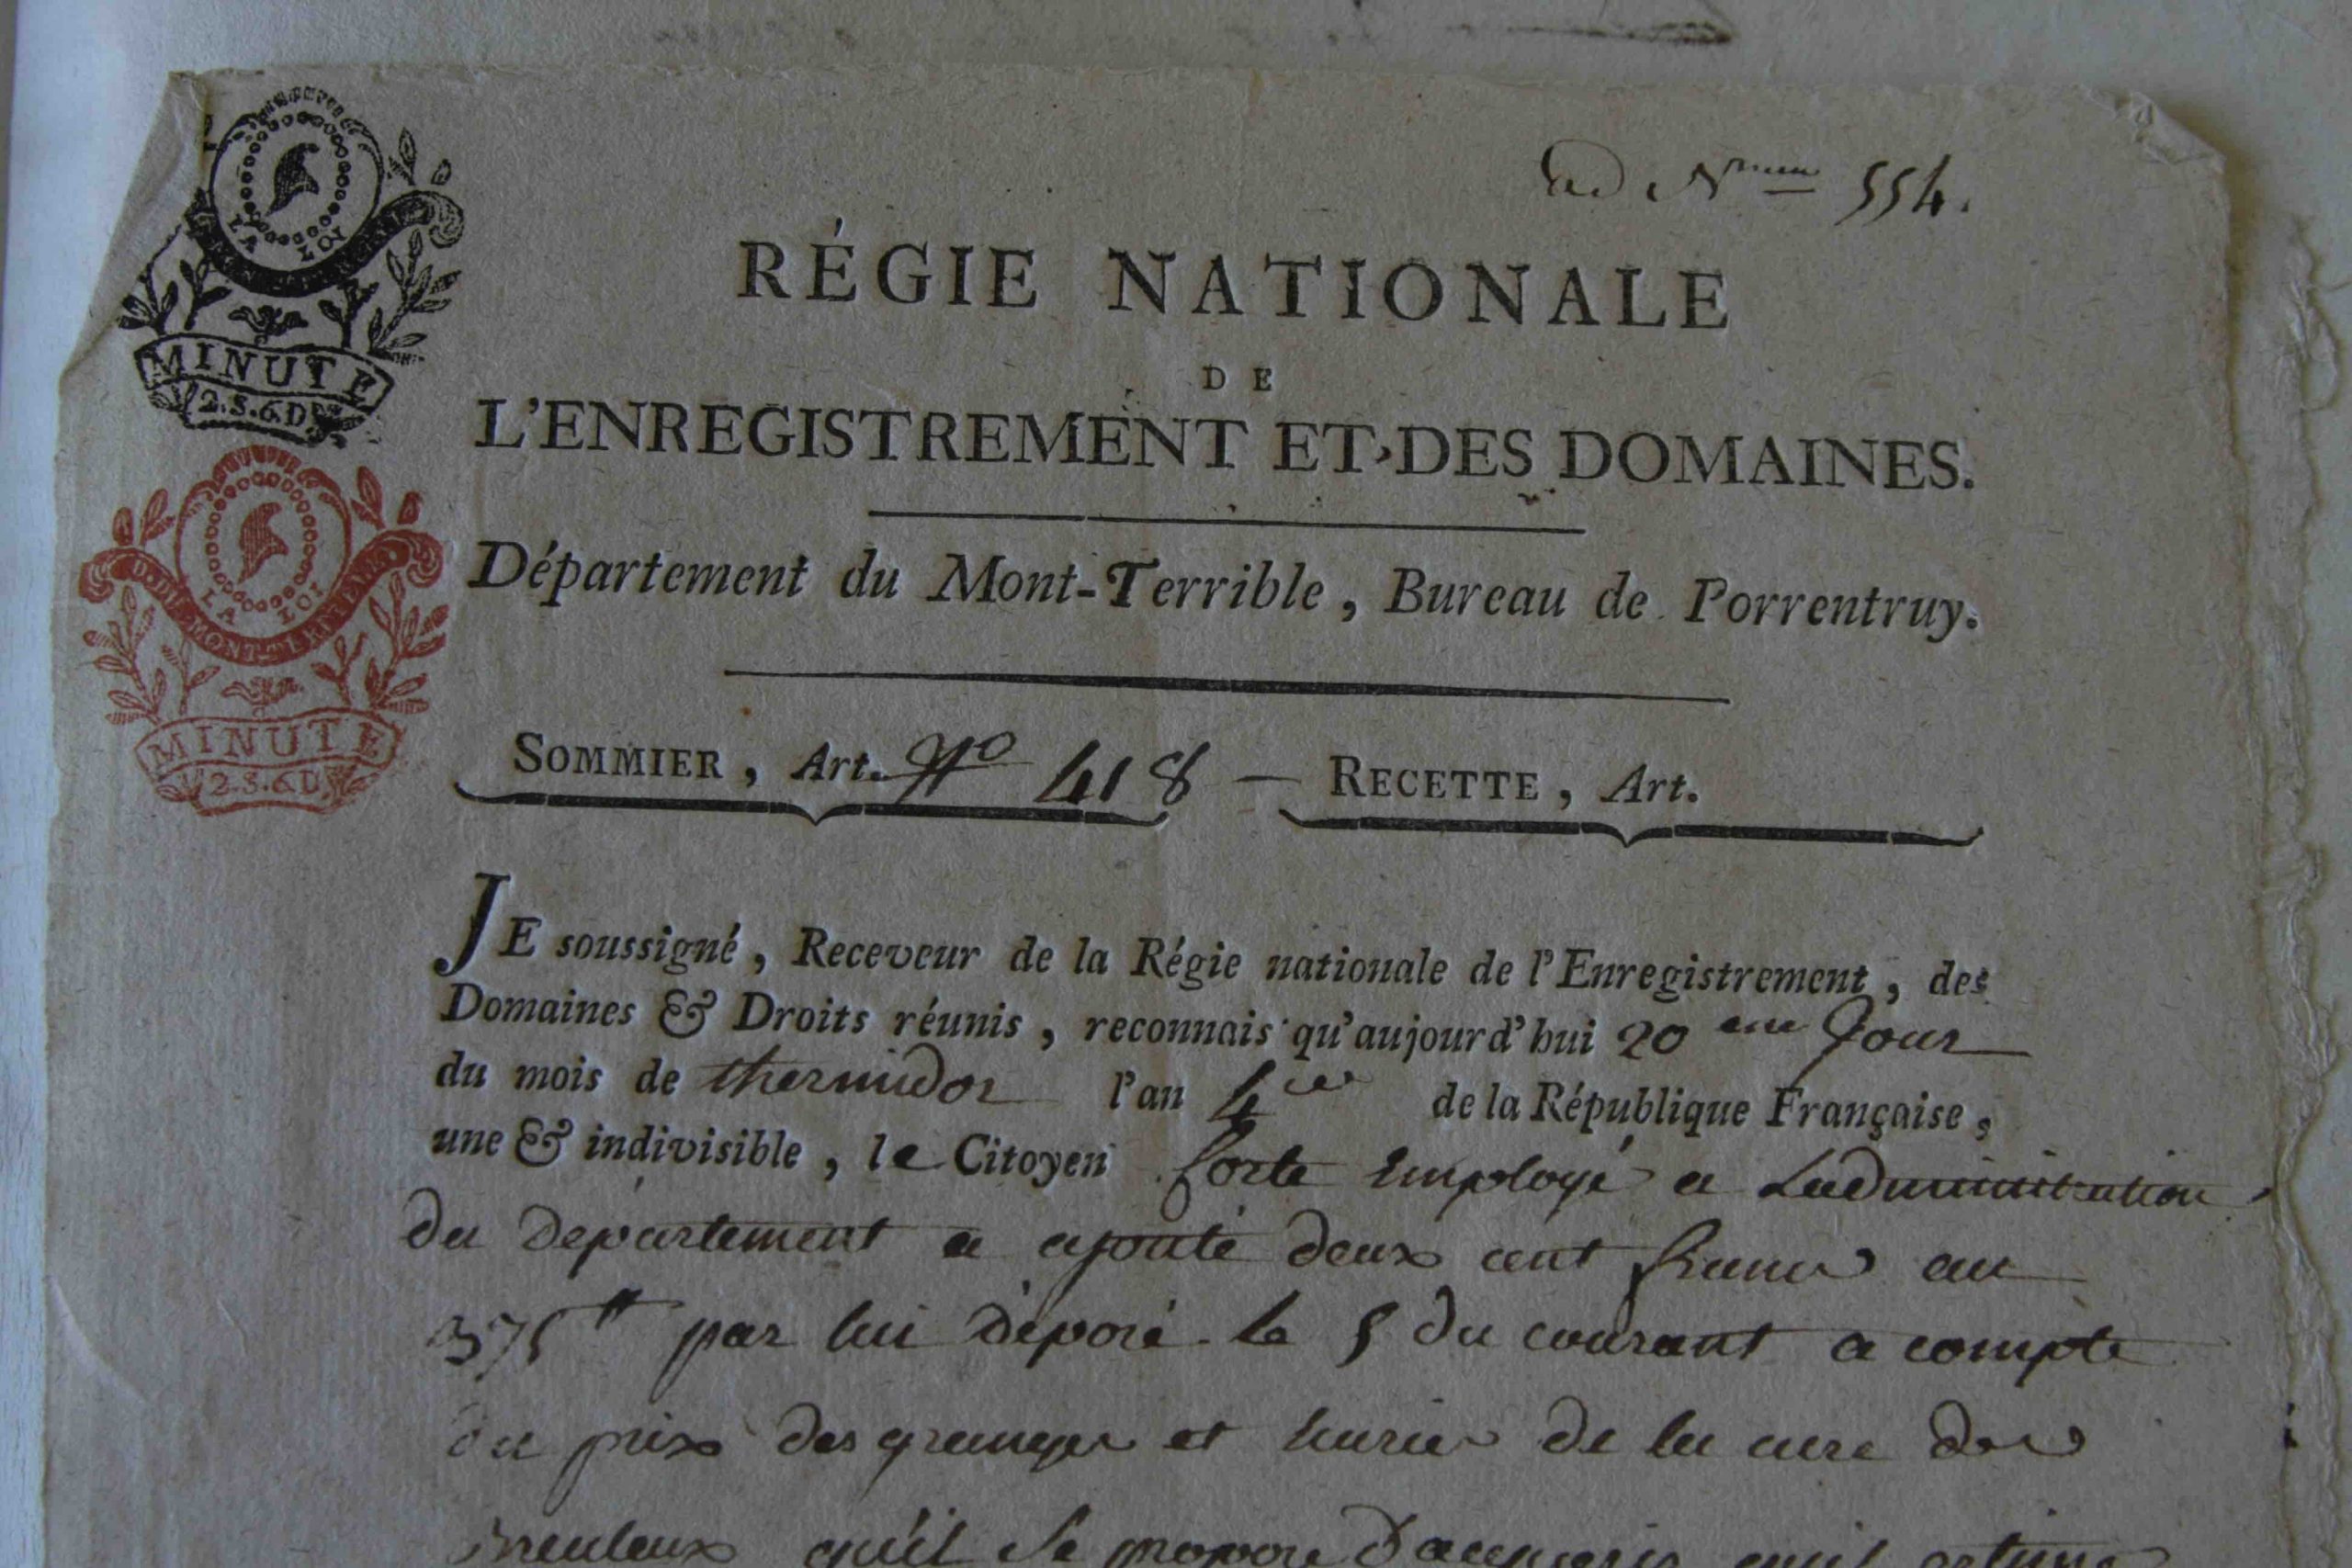 LA LOI
MINUTE
2.S.6.D.
D. DU MONT-TERRIBLE
LA LOI
MINUTE
2.S.6.D.
ad Num 554.
RÉGIE NATIONALE
DE
L'ENREGISTREMENT ET DES DOMAINES.
Département du Mont-Terrible, Bureau de Porrentruy.
SOMMIER, Art. No 418 — RECETTE, Art.
JE soussigné, Receveur de la Régie nationale de l'Enregistrement, des
Domaines & Droits réunis, reconnais qu'aujourd'hui 20 eme Jour
du mois de thermidor l'an 4 de la République Française,
une & indivisible, le Citoyen employé a Ladministration
du departement a ajouté deux cent francs au
375 par lui déposé le 5 du courant a compte
du prix des granges et de la cure des
qu'il se propose